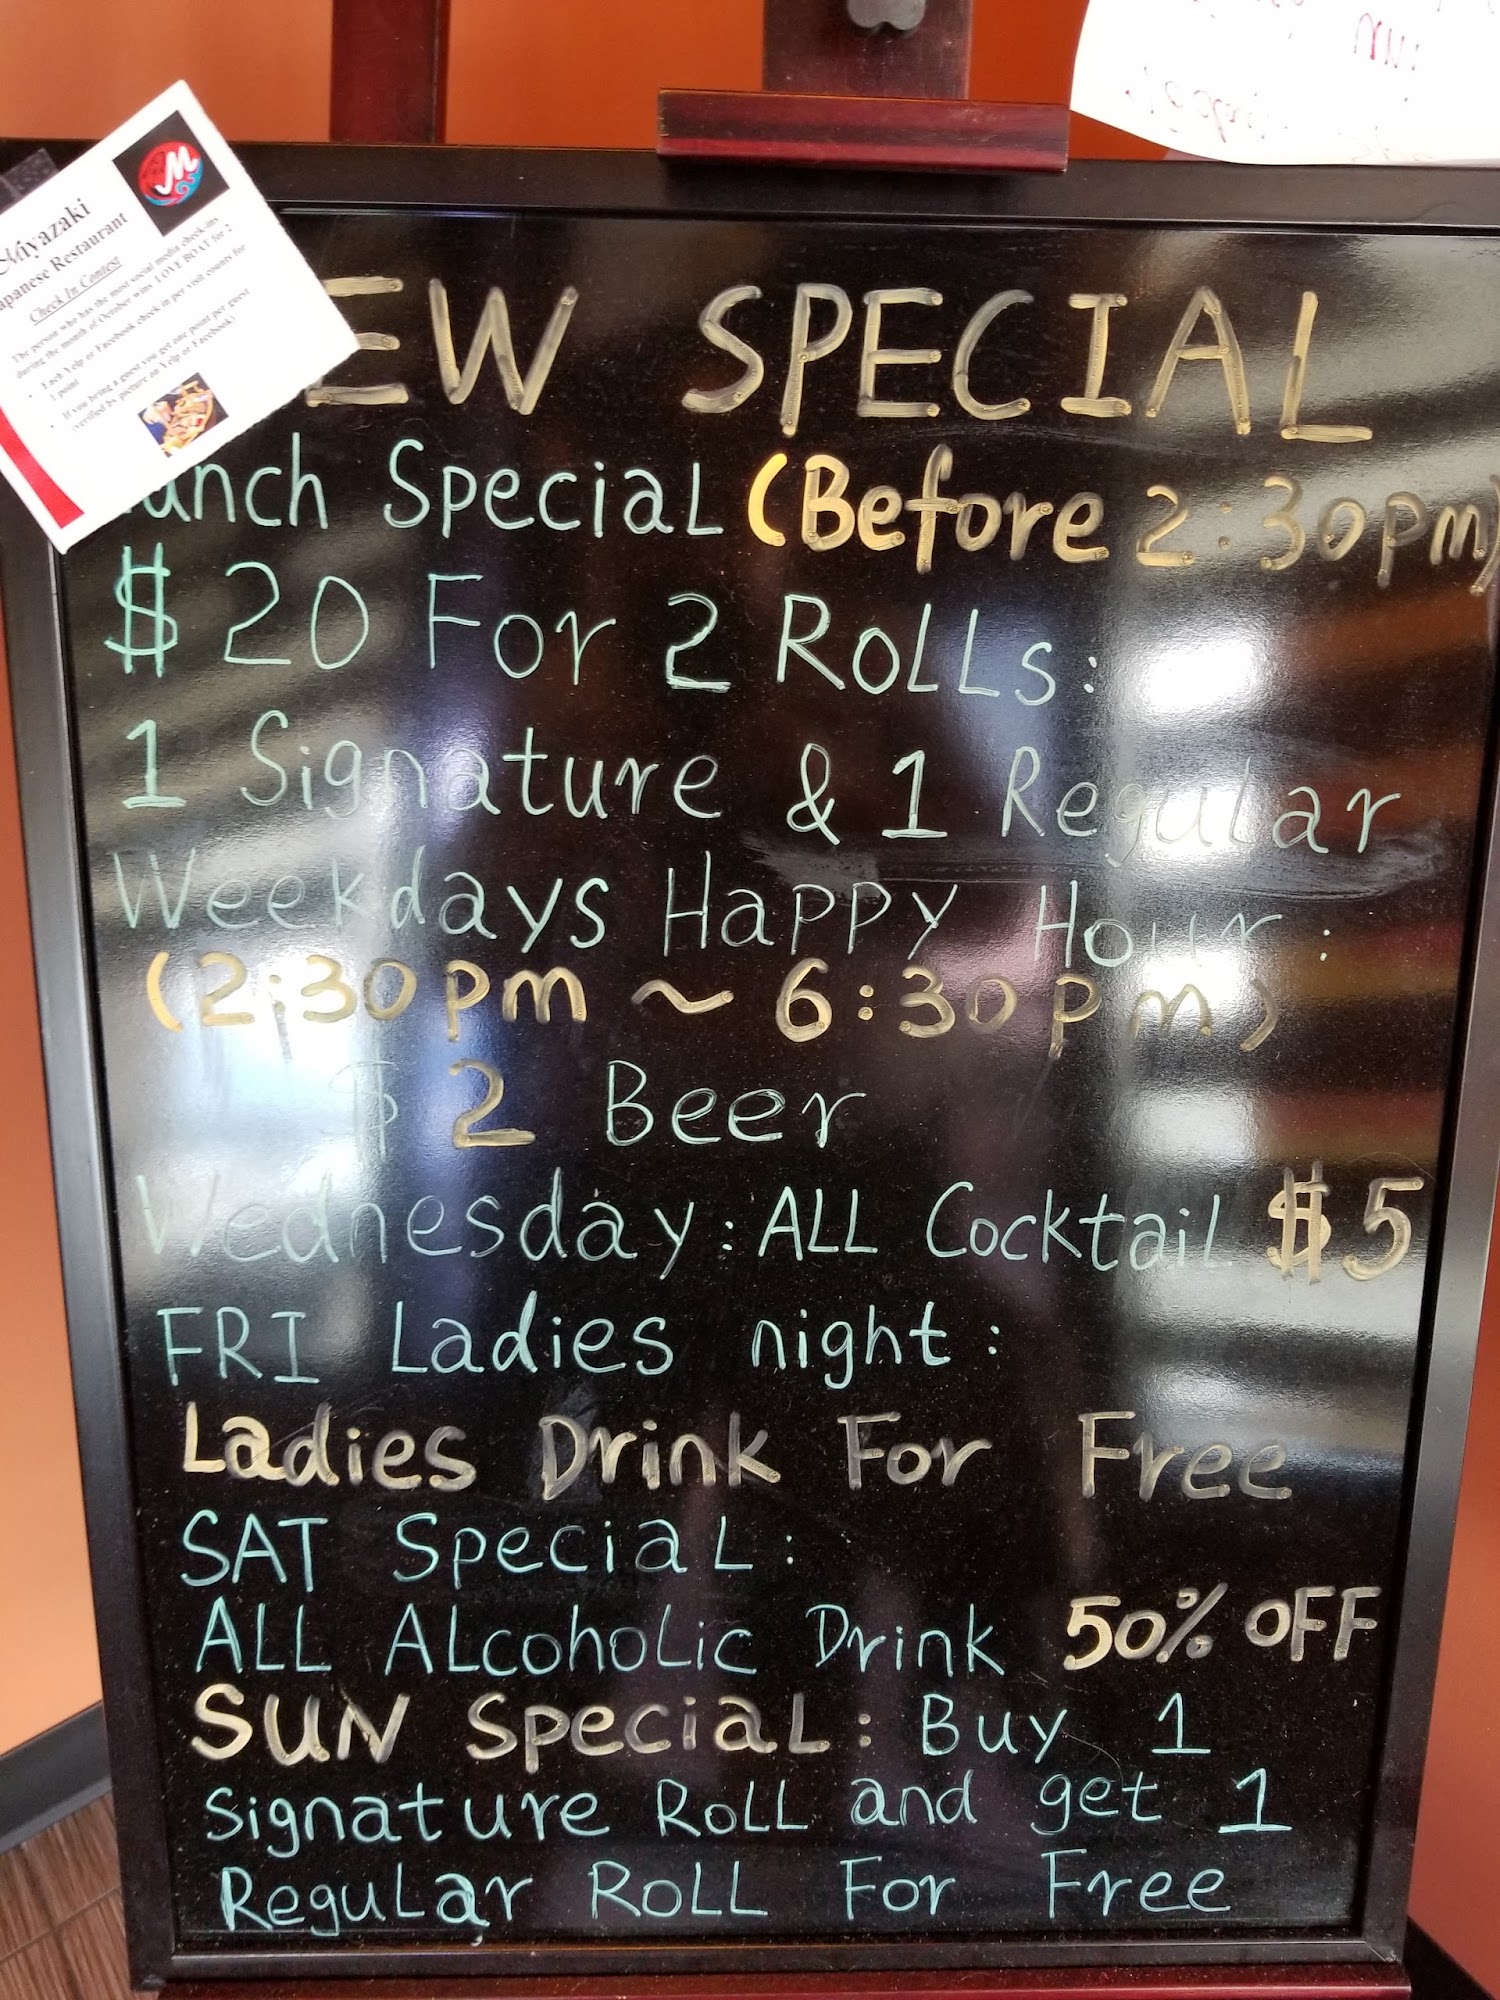 Miyazaki
Japanese Restaurant
Check In Contest
The person who has the most social media check-ins
during the month of October wins LOVE BOAT for 2
Each Yelp or Facebook check in per visit counts for
1 point
If you bring a guest you get one point per guest
verified by picture on Yelp or Facebook!
M
EW SPECIAL
unch Special (Before 2:30pm)
$20 For 2 Rolls:
1 Signature & 1 Regular
Weekdays Happy Hour:
(2:30pm ~ 6:30pm)
$2 Beer
Wednesday: ALL Cocktail $5
FRI Ladies night:
Ladies Drink For Free
SAT Special:
ALL ALcohoLic Drink 50% OFF
SUN Special: Buy 1
Signature Roll and get 1
Regular Roll For Free